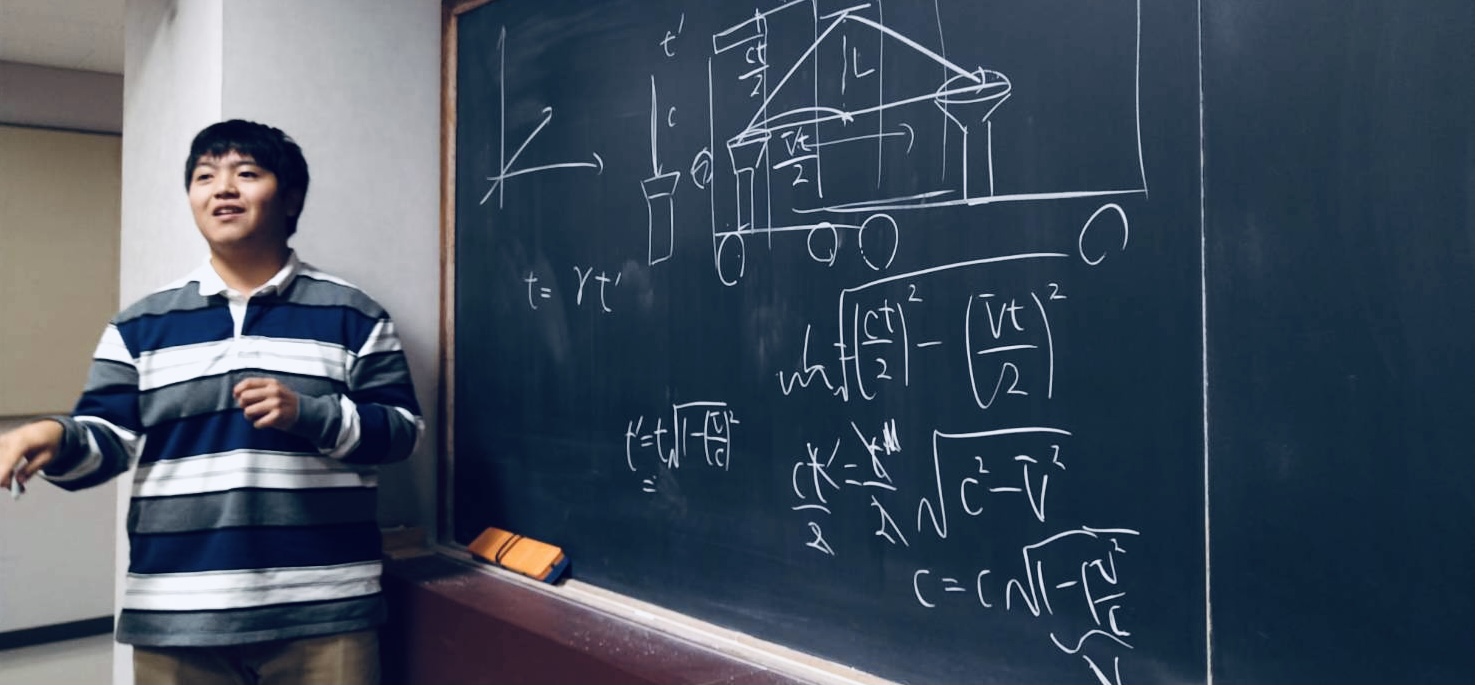 t'
ct/2
c
L
vt/2
t = γt'
L = √((ct/2)² - (vt/2)²)
t' = t√(1-(v/c)²)
=
ct'/2 = t/2 √(c² - v²)
c = c√(1-(v/c)²)